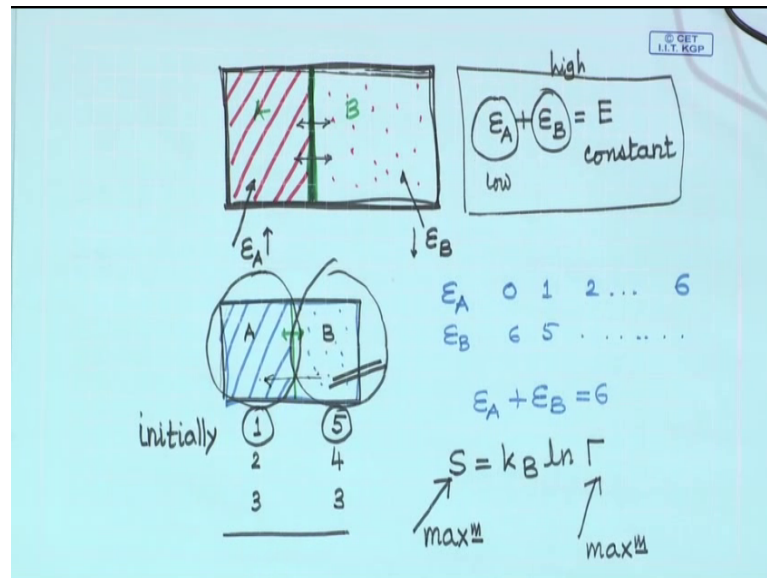 © CET
I.I.T. KGP
A B
high
εA + εB = E
constant
low
εA↑
↓ εB
εA 0 1 2... 6
εB 6 5 . . . . . . .
A B
εA + εB = 6
initially 1 5
2 4
3 3
S = kB ln Γ
maxm
maxm